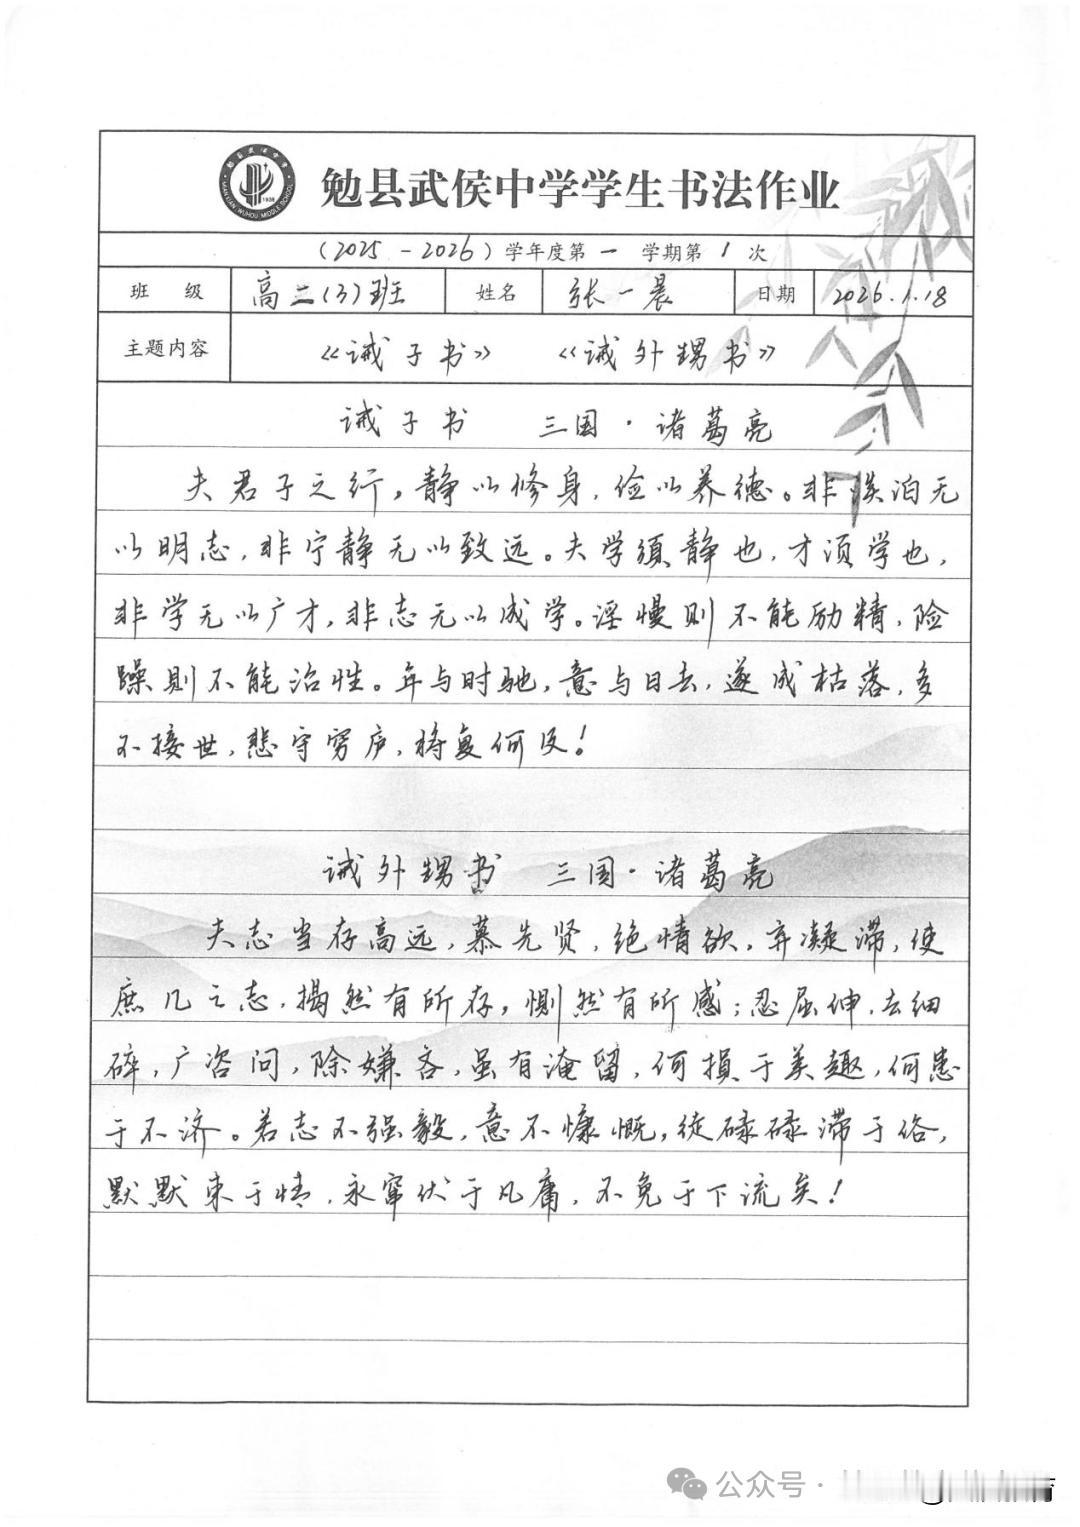 勉县武侯中学
MIANXIAN WUHOU MIDDLE SCHOOL
1938
勉县武侯中学学生书法作业
（2025－2026）学年度第一学期第1次
班级 高二(3)班 姓名 张一晨 日期 2026.1.18
主题内容 《诫子书》 《诫外甥书》
诫子书 三国·诸葛亮
夫君子之行，静以修身，俭以养德。非淡泊无
以明志，非宁静无以致远。夫学须静也，才须学也，
非学无以广才，非志无以成学。淫慢则不能励精，险
躁则不能治性。年与时驰，意与日去，遂成枯落，多
不接世，悲守穷庐，将复何及！
诫外甥书 三国·诸葛亮
夫志当存高远，慕先贤，绝情欲，弃凝滞，使
庶几之志，揭然有所存，恻然有所感；忍屈伸，去细
碎，广咨问，除嫌吝，虽有淹留，何损于美趣，何患
于不济。若志不强毅，意不慷慨，徒碌碌滞于俗，
默默束于情，永窜伏于凡庸，不免于下流矣！
公众号·